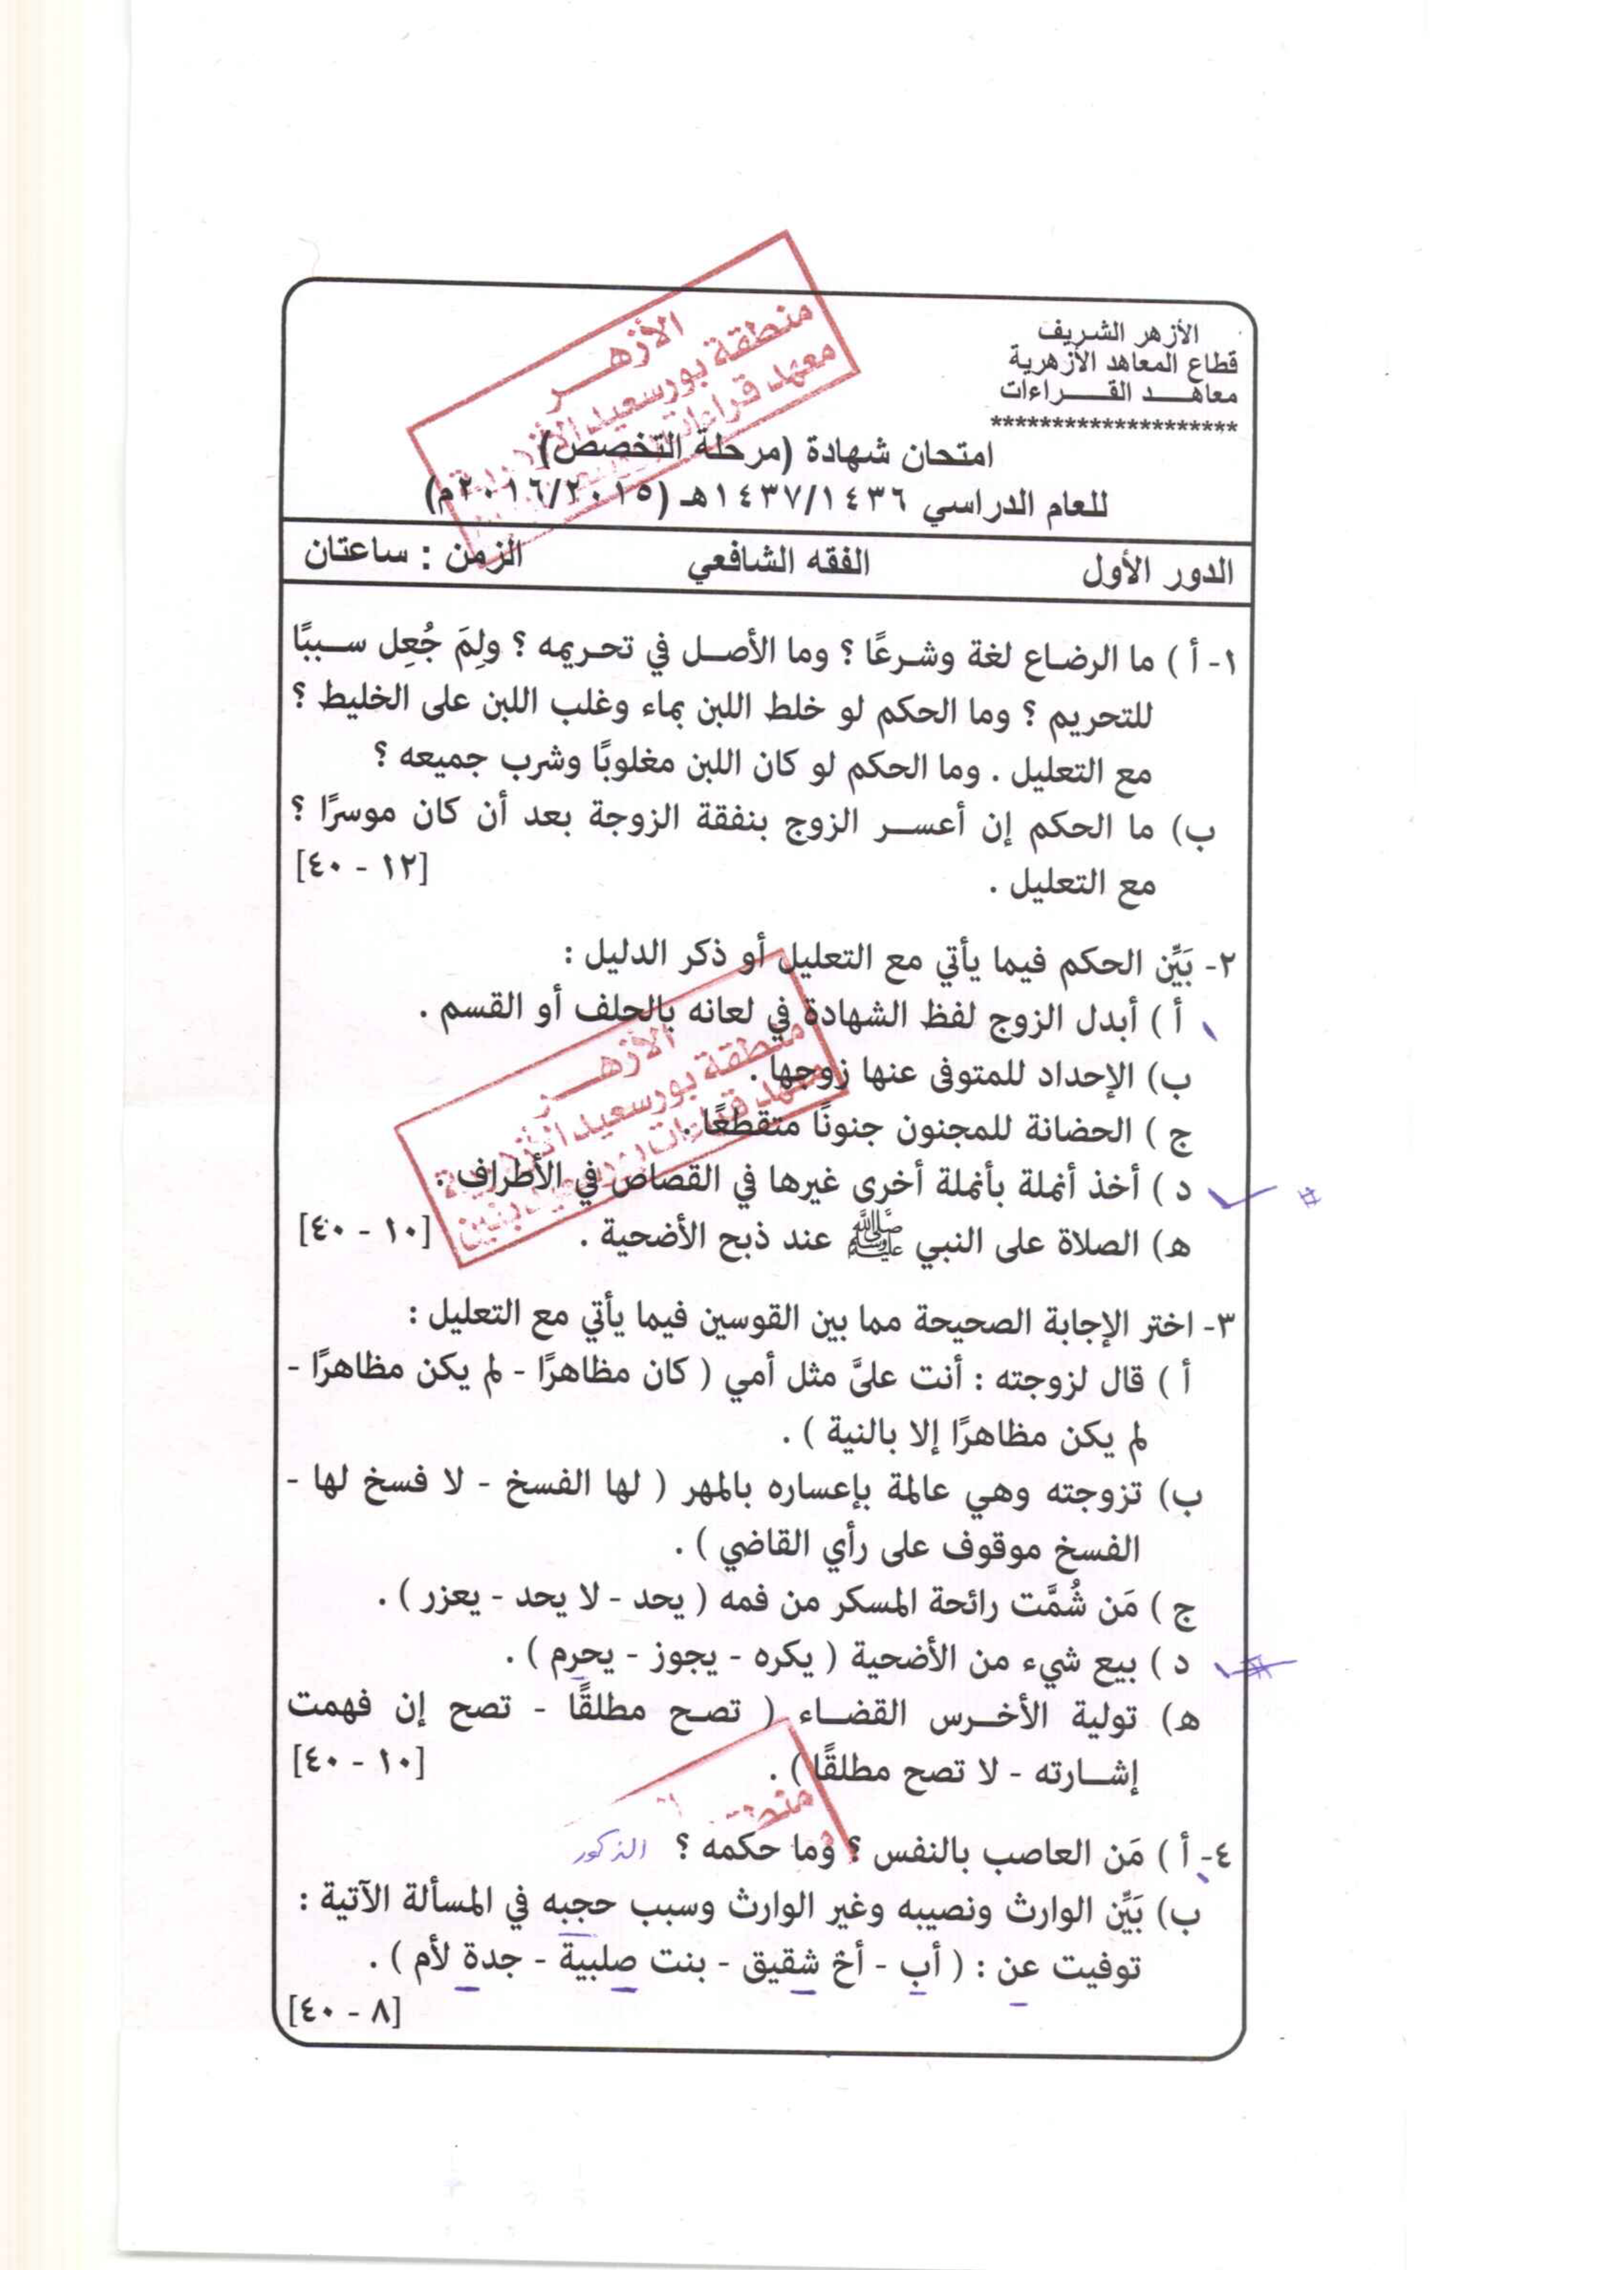 الأزهر الشريف
قطاع المعاهد الأزهرية
معاهـــد القـــراءات
********************
امتحان شهادة (مرحلة التخصص)
للعام الدراسي ١٤٣٧/١٤٣٦هـ (٢٠١٦/٢٠١٥م)
الدور الأول الفقه الشافعي الزمن : ساعتان
١- أ ) ما الرضاع لغة وشرعًا ؟ وما الأصل في تحريمه ؟ ولِمَ جُعِل سببًا
للتحريم ؟ وما الحكم لو خلط اللبن بماء وغلب اللبن على الخليط ؟
مع التعليل . وما الحكم لو كان اللبن مغلوبًا وشرب جميعه ؟
ب) ما الحكم إن أعسر الزوج بنفقة الزوجة بعد أن كان موسرًا ؟
مع التعليل . [١٢ - ٤٠]
٢- بَيِّن الحكم فيما يأتي مع التعليل أو ذكر الدليل :
أ ) أبدل الزوج لفظ الشهادة في لعانه بالحلف أو القسم .
ب) الإحداد للمتوفى عنها زوجها .
ج ) الحضانة للمجنون جنونًا متقطعًا .
د ) أخذ أنملة بأنملة أخرى غيرها في القصاص في الأطراف .
هـ) الصلاة على النبي ﷺ عند ذبح الأضحية . [١٠ - ٤٠]
٣- اختر الإجابة الصحيحة مما بين القوسين فيما يأتي مع التعليل :
أ ) قال لزوجته : أنت علىَّ مثل أمي ( كان مظاهرًا - لم يكن مظاهرًا -
لم يكن مظاهرًا إلا بالنية ) .
ب) تزوجته وهي عالمة بإعساره بالمهر ( لها الفسخ - لا فسخ لها -
الفسخ موقوف على رأي القاضي ) .
ج ) مَن شُمَّت رائحة المسكر من فمه ( يحد - لا يحد - يعزر ) .
د ) بيع شيء من الأضحية ( يكره - يجوز - يحرم ) .
هـ) تولية الأخرس القضاء ( تصح مطلقًا - تصح إن فهمت
إشارته - لا تصح مطلقًا ) . [١٠ - ٤٠]
٤- أ ) مَن العاصب بالنفس ؟ وما حكمه ؟ الذكور
ب) بَيِّن الوارث ونصيبه وغير الوارث وسبب حجبه في المسألة الآتية :
توفيت عن : ( أب - أخ شقيق - بنت صلبية - جدة لأم ) .
[٨ - ٤٠]
الأزهـــر
منطقة بورسعيد الأزهرية
معهد قراءات
الأزهـــر
منطقة بورسعيد الأزهرية
معهد قراءات بورسعيد بنين